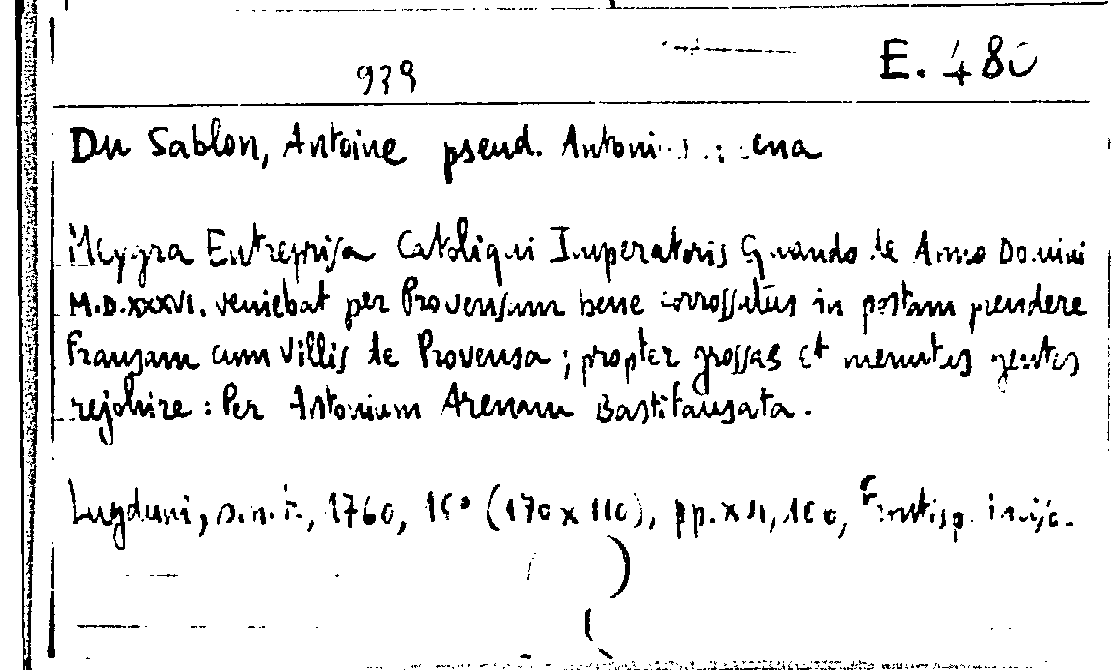 939 E. 480
Du Sablon, Antoine pseud. Antoni
Meygra Entreprisa Catoliqui Imperatoris Quando de Anno Domini
M.D.XXXVI. veniebat per Provensam bene corrossatus in postam prendere
Fransam cum Villis de Provensa; propter grossas et menutas gentes
rejohire: Per Antonium Arenam Bastifausata.
Lugduni, s.n.t., 1760, (170 x 110), pp. Frontisp. inciso.